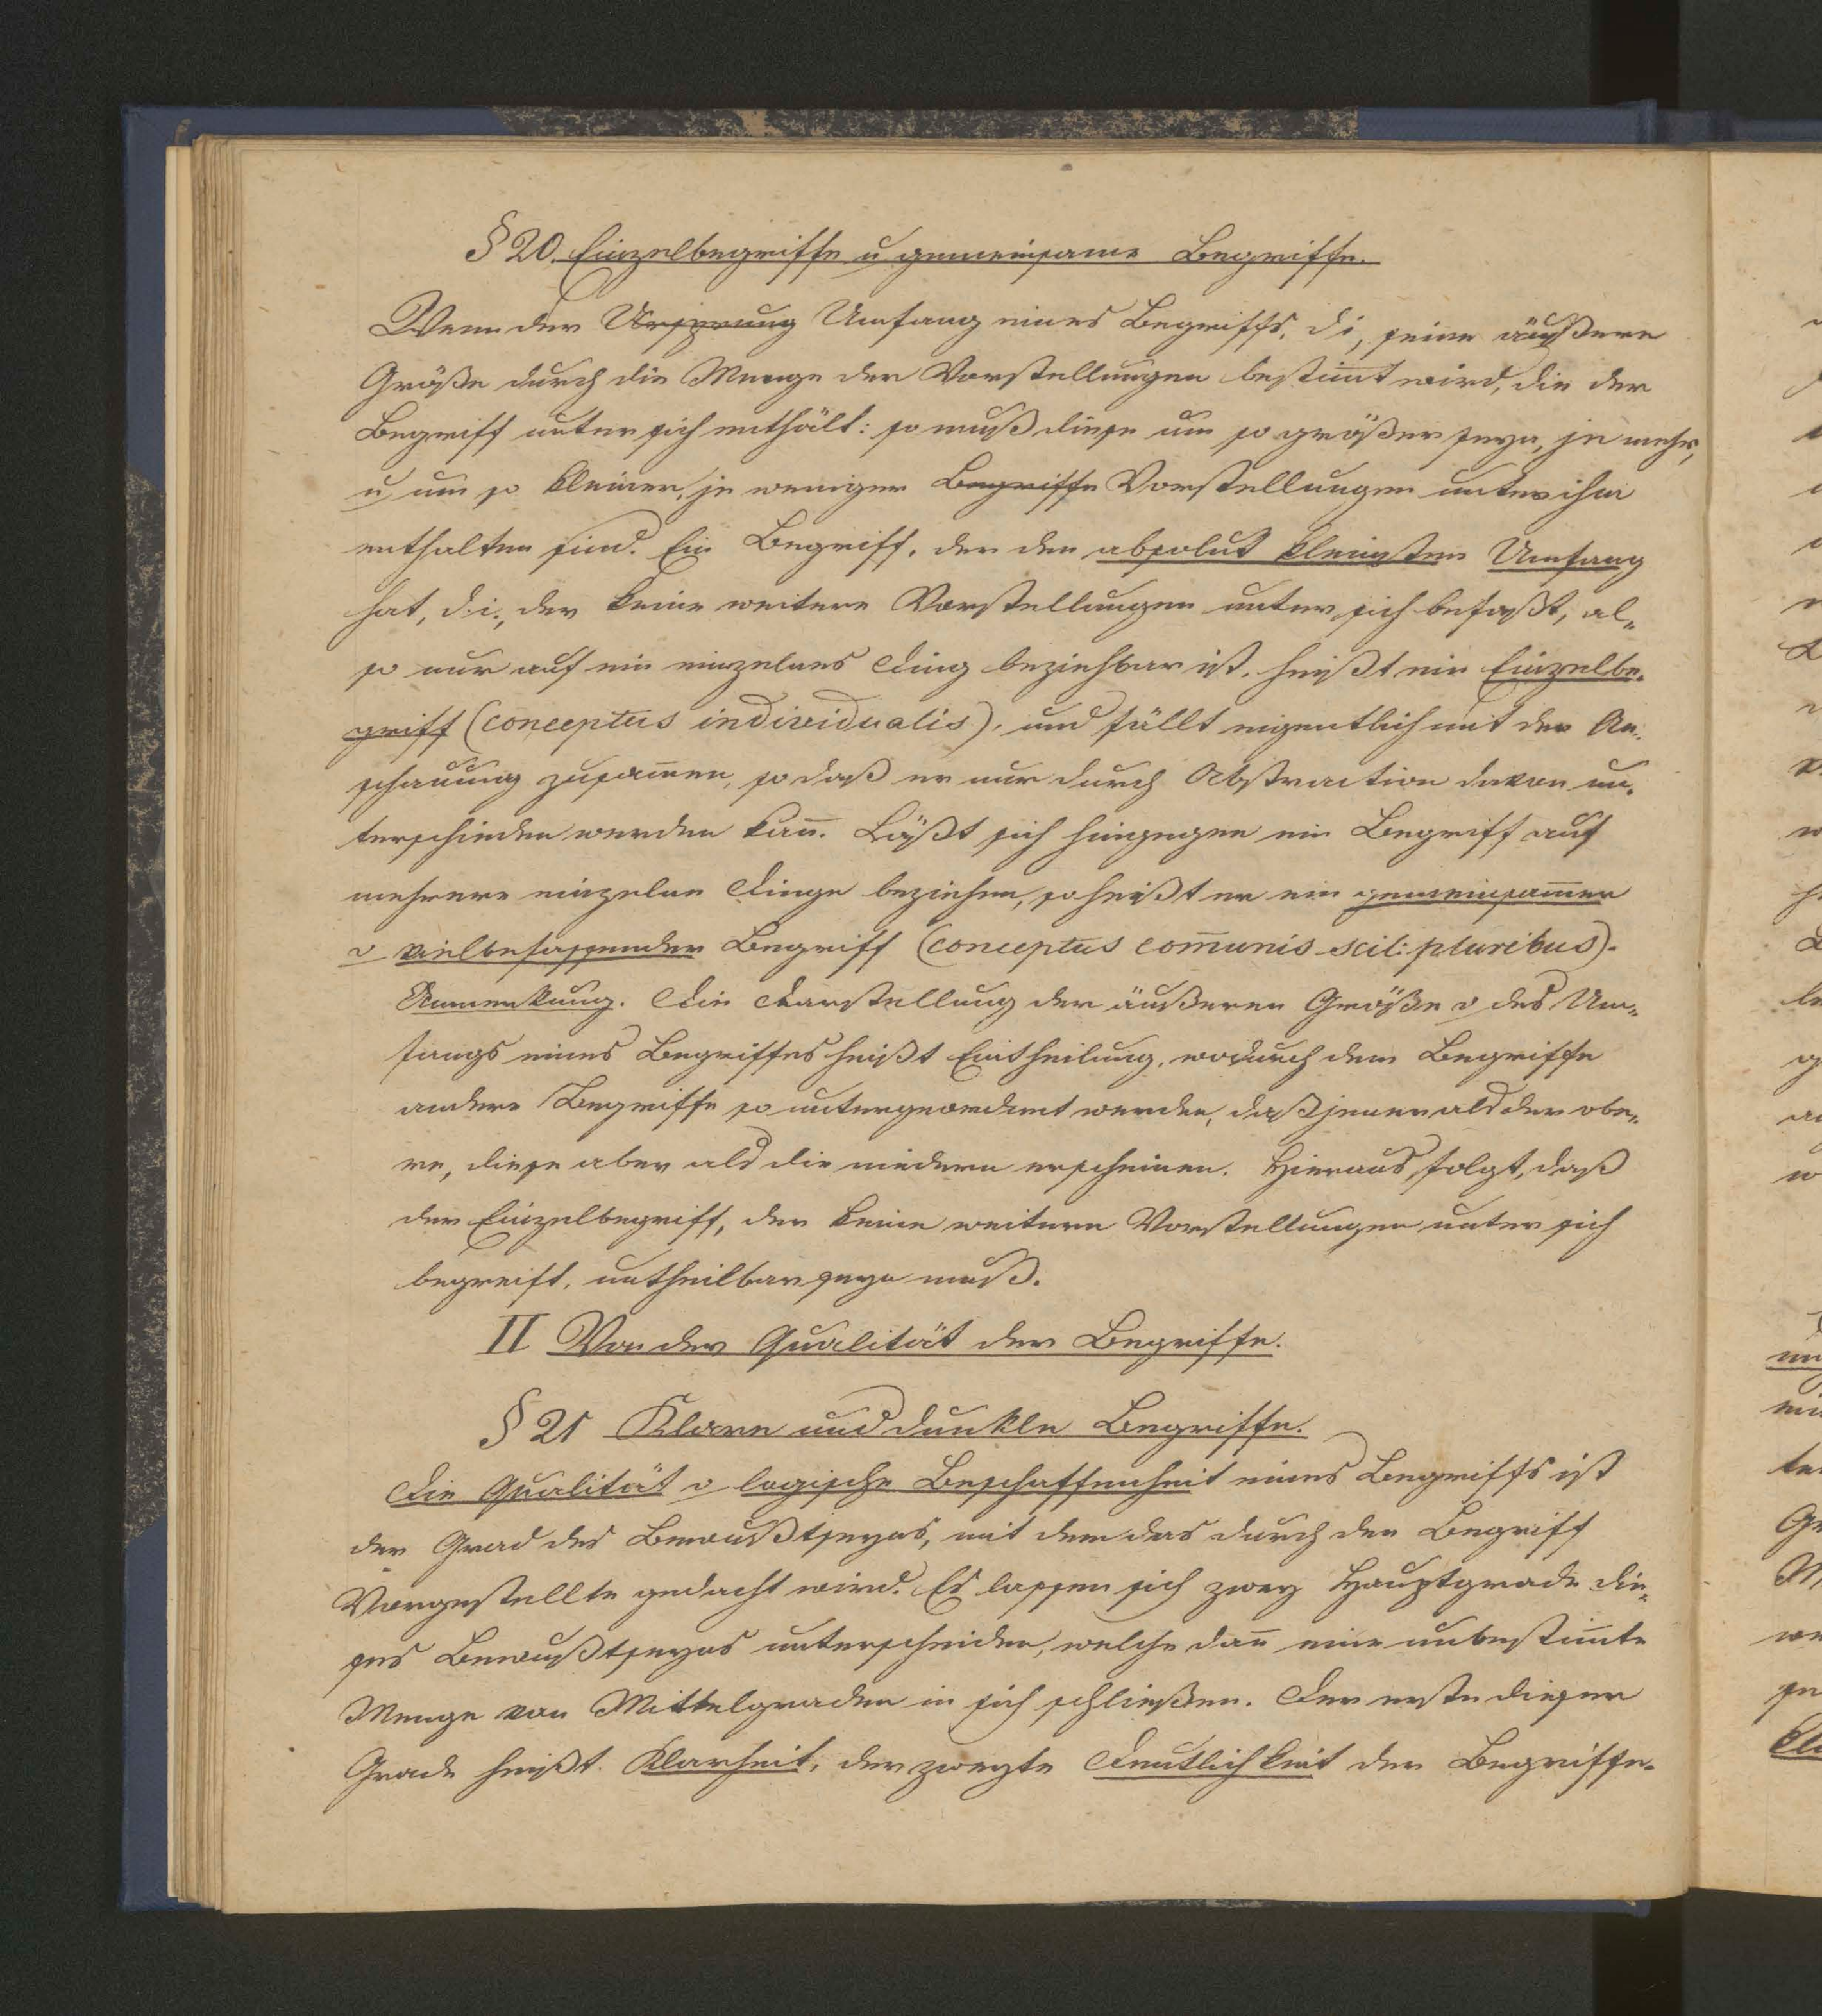 § 20. Einzelbegriffe u gemeinsame Begriffe.
Wenn der Ursprung Umfang eines Begriffs, d i, seine äußere
Größe durch die Menge der Vorstellungen bestim̅t wird, die der
Begriff unter sich enthält: so muß diese um so größer seyn, je mehr,
u um so kleiner, je weniger Begriffe Vorstellungen unter ihm
enthalten sind. Ein Begriff, der den absolut kleinsten Umfang
hat, d. i., der keine weitere Vorstellungen unter sich befaßt, al„
so nur auf ein einzelnes Ding beziehbar ist, heißt ein Einzelbe„
griff (conceptus individualis), und fällt eigentlich mit der An„
schauung zusam̅en, so daß er nur durch Abstraction davon un„
terschieden werden kan̅. Läßt sich hingegen ein Begriff auf
mehrere einzelne Dinge beziehen, so heißt er ein gemeinsam̅er
o vielbefassender Begriff (conceptus com̅unis scil: pluribus).
Anmerkung. Die Darstellung der äußeren Größe o des Um„
fangs eines Begriffes heißt Eintheilung, wodurch dem Begriffe
andere Begriffe so untergeordnet werden, daß jener als der obe„
re, diese aber als die niedern erscheinen. Hieraus folgt, daß
der Einzelbegriff, der keine weitern Vorstellungen unter sich
begreift, untheilbar seyn muß.
II Von der Qualität der Begriffe.
§ 21 Klare und dunkle Begriffe.
Die Qualität o logische Beschaffenheit eines Begriffs ist
der Grad des Bewußtseyns, mit dem das durch den Begriff
Vorgestellte gedacht wird. Es lassen sich zwey Hauptgrade die„
ses Bewußtseyns unterscheiden, welche dan̅ eine unbestim̅te
Menge von Mittelgraden in sich schließen. Der erste dieser
Grade heißt Klarheit, der zweyte Deutlichkeit der Begriffe.